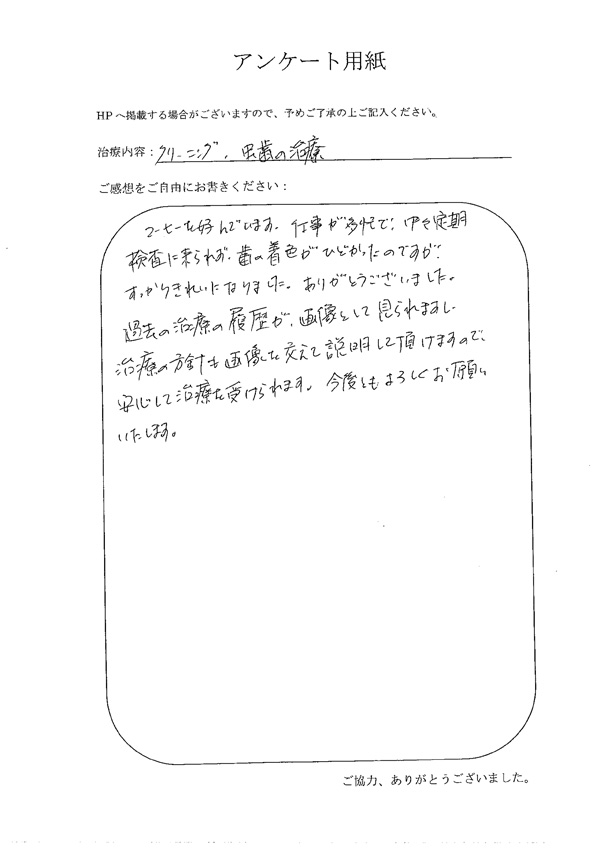 アンケート用紙
HPへ掲載する場合がございますので、予めご了承の上ご記入ください。
治療内容：クリーニング、虫歯の治療
ご感想をご自由にお書きください：
コーヒーを好んでいます。仕事が多忙で、中々定期
検査に来られず、歯の着色がひどかったのですが、
すっかりきれいになりました。ありがとうございました。
過去の治療の履歴が、画像として見られますし
治療の方針も画像を交えて説明して頂けますので、
安心して治療を受けられます。今後ともよろしくお願い
いたします。
ご協力、ありがとうございました。